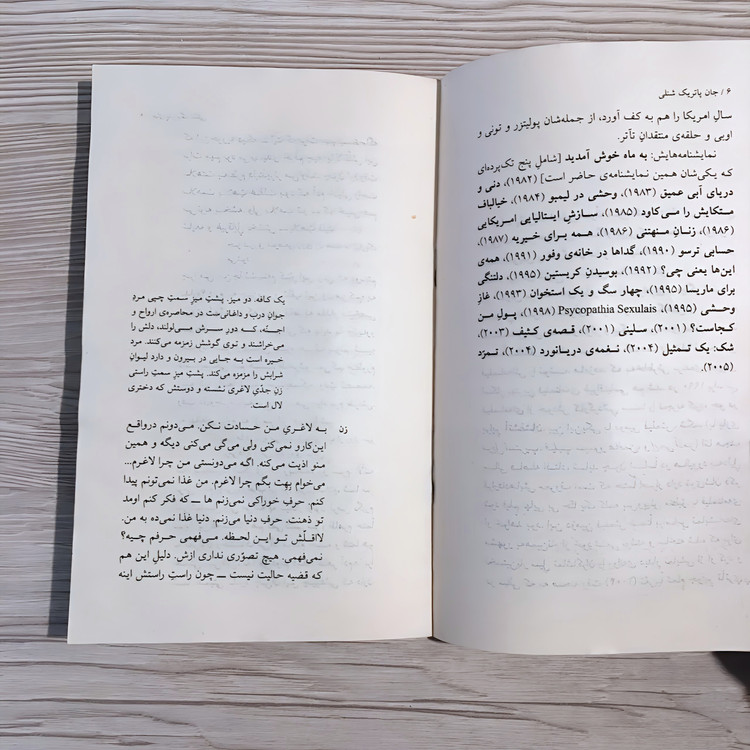 ۶ / جان پاتریک شنلی
سالِ امریکا را هم به کف آورد، از جمله‌شان پولیتزر و تونی و
اوبی و حلقه‌ی منتقدانِ تآتر.
نمایشنامه‌هایش: به ماه خوش آمدید [شاملِ پنج تک‌پرده‌ای
که یکی‌شان همین نمایشنامه‌ی حاضر است] (۱۹۸۲)، دنی و
دریای آبی عمیق (۱۹۸۳)، وحشی در لیمبو (۱۹۸۴)، خیالباف
متکایش را می‌کاود (۱۹۸۵)، سازشِ ایتالیایی امریکایی
(۱۹۸۶)، زنانِ منهتنی (۱۹۸۶)، همه برای خیریه (۱۹۸۷)،
حسابی ترسو (۱۹۹۰)، گداها در خانه‌ی وفور (۱۹۹۱)، همه‌ی
این‌ها یعنی چی؟ (۱۹۹۲)، بوسیدنِ کریستین (۱۹۹۵)، دلتنگی
برای ماریسا (۱۹۹۵)، چهار سگ و یک استخوان (۱۹۹۳)، غازِ
وحشی (۱۹۹۵)، Psycopathia Sexulais (۱۹۹۸)، پولِ من
کجاست؟ (۲۰۰۱)، سلینی (۲۰۰۱)، قصه‌ی کثیف (۲۰۰۳)،
شک: یک تمثیل (۲۰۰۴)، نغمه‌ی دریانورد (۲۰۰۴)، تمرّد
(۲۰۰۵).
یک کافه. دو میز. پشتِ میزِ سمتِ چپی مردِ
جوانِ درب و داغانی‌ست در محاصره‌ی ارواح و
اجنّه، که دورِ سرش می‌لولند، دلش را
می‌خراشند و توی گوشش زمزمه می‌کنند. مرد
خیره است به جایی در بیرون و دارد لیوانِ
شرابش را مزمزه می‌کند. پشتِ میزِ سمتِ راستی
زنِ جدّیِ لاغری نشسته و دوستش که دختری
لال است.
زن به لاغریِ من حسادت نکن. می‌دونم درواقع
این‌کارو نمی‌کنی ولی می‌گی می‌کنی دیگه و همین
منو اذیت می‌کنه. اگه می‌دونستی من چرا لاغرم...
می‌خوام بِهِت بگم چرا لاغرم. من غذا نمی‌تونم پیدا
کنم. حرفِ خوراکی نمی‌زنم ها ــ که فکر کنم اومد
تو ذهنت. حرفِ دنیا می‌زنم. دنیا غذا نمی‌ده به من.
لااقلّش تو این لحظه. می‌فهمی حرفم چیه؟
نمی‌فهمی. هیچ تصوّری نداری ازش. دلیلِ این هم
که قضیه حالیت نیست ــ چون راستِ راستش اینه